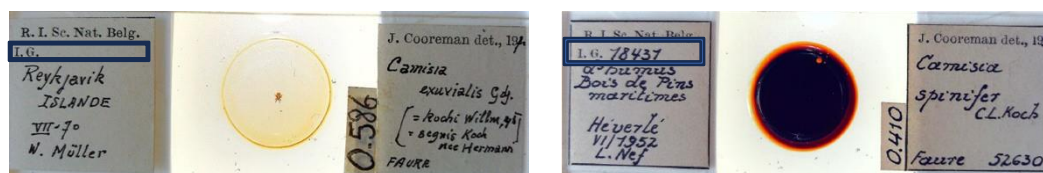 R. I. Sc. Nat. Belg.
I. G.
Reykjavik
ISLANDE
VII-70
W. Müller
0.586
J. Cooreman det., 19
Camisia
exuvialis
[= kochi Willm,
= segnis Koch
nec Hermann
FAURE
R. I. Sc. Nat. Belg.
I. G. 18437
humus
Bois de Pins
maritimes
Héverlé
VI/1952
L. Nef
0.410
J. Cooreman det., 19
Camisia
spinifer
C.L. Koch
Faure 52630